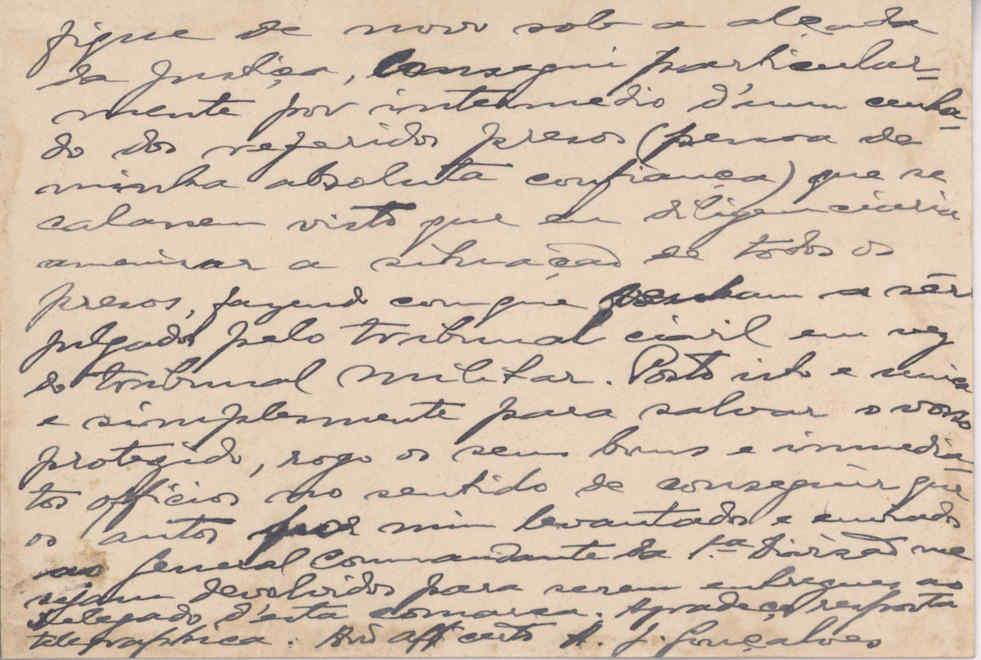 fique de novo sob a alçada
da Justiça, consegui particular-
mente por intermedio d'um cunha-
do dos referidos presos (pessoa de
minha absoluta confiança) que se
calassem visto que eu diligenciaria
amenisar a situação de todos os
presos, fazendo com que venham a sêr
julgados pelo tribunal civil em vez
do tribunal militar. Posto isto e unica
e simplesmente para salvar o vosso
protegido, rogo os seus bons e immedia-
tos officios no sentido de conseguir que
os autos por mim levantados e enviados
ao General Commandante da 1.ª Divisão me
sejam devolvidos para serem entregues ao
Delegado d'esta comarca. Agradeço resposta
telegraphica. A. J. Gonçalves